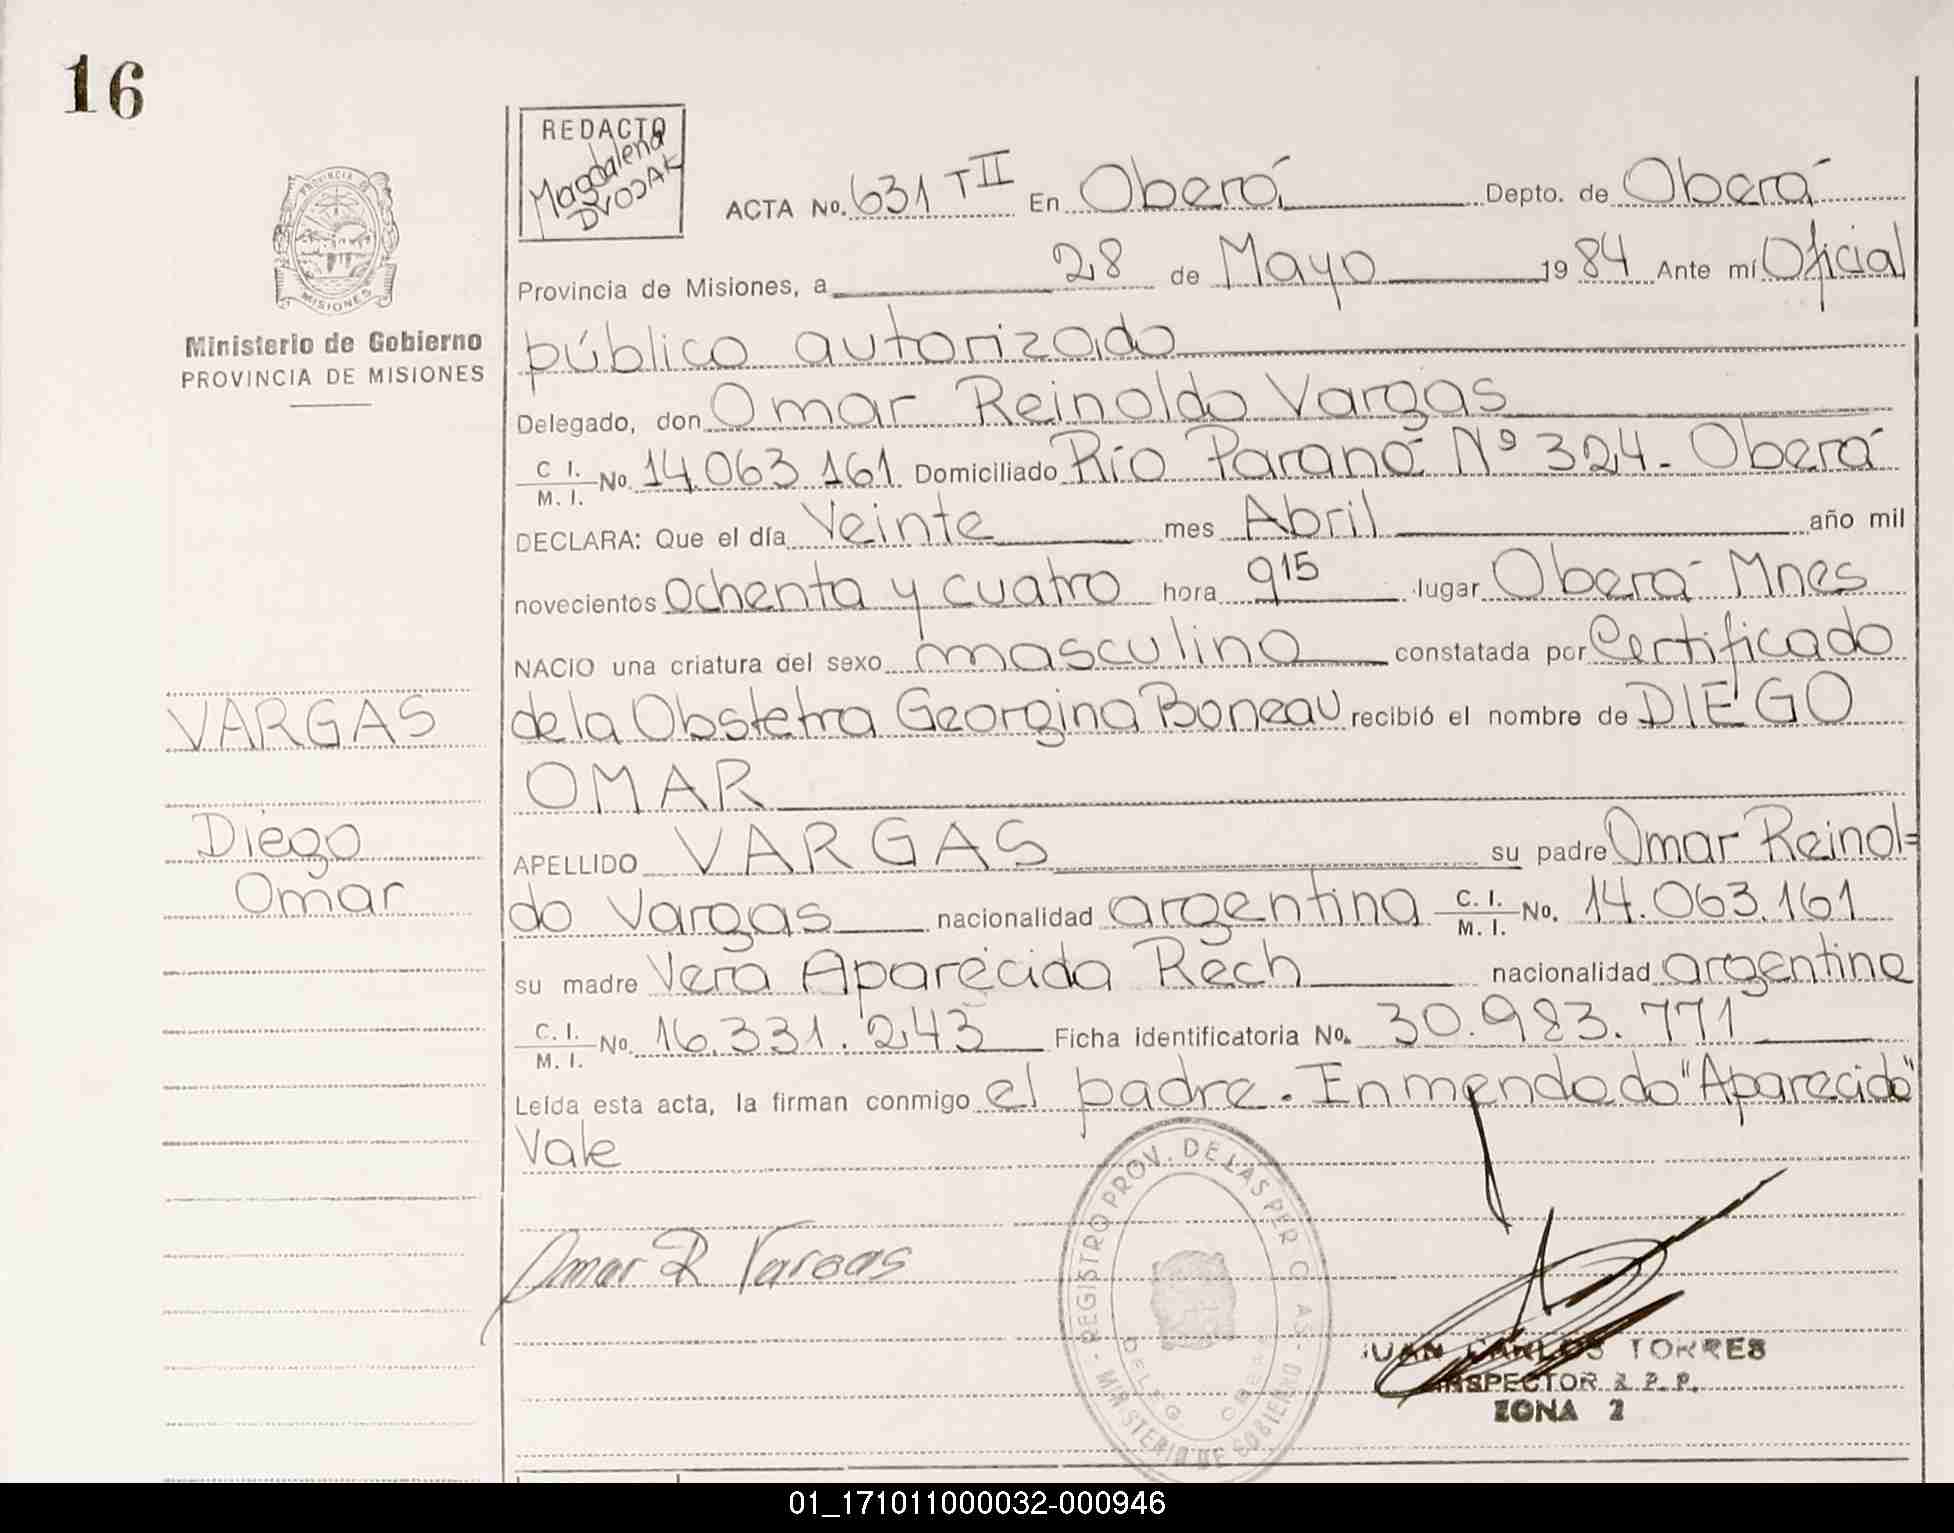 16
REDACTO
Magdalena
DVOJAK
PROVINCIA DE
MISIONES
Ministerio de Gobierno
PROVINCIA DE MISIONES
ACTA No. 631 T II En Oberá Depto. de Oberá
Provincia de Misiones, a 28 de Mayo 1984 Ante mí Oficial
público autorizado
Delegado, don Omar Reinaldo Vargas
C I. M. I. No. 14.063.161 Domiciliado Río Paraná Nº 324- Oberá
DECLARA: Que el día Veinte mes Abril año mil
novecientos ochenta y cuatro hora 9 15 lugar Oberá- Mnes
NACIO una criatura del sexo masculino constatada por Certificado
de la Obstetra Georgina Boneau recibió el nombre de DIEGO
OMAR
APELLIDO VARGAS su padre Omar Reinol=
do Vargas nacionalidad argentina C. I. M. I. No. 14.063.161
su madre Vera Aparecida Rech nacionalidad argentina
C. I. M. I. No. 16.331.243 Ficha identificatoria No. 30.983.771
Leída esta acta, la firman conmigo el padre. Inmendado "Aparecida"
Vale
VARGAS
Diego
Omar
Omar R Vargas
REGISTRO PROV. DE LAS PER C AS - MINISTERIO DE GOBIERNO -
DELEG
JUAN CARLOS TORRES
INSPECTOR R. P. P.
ZONA 2
01_171011000032-000946